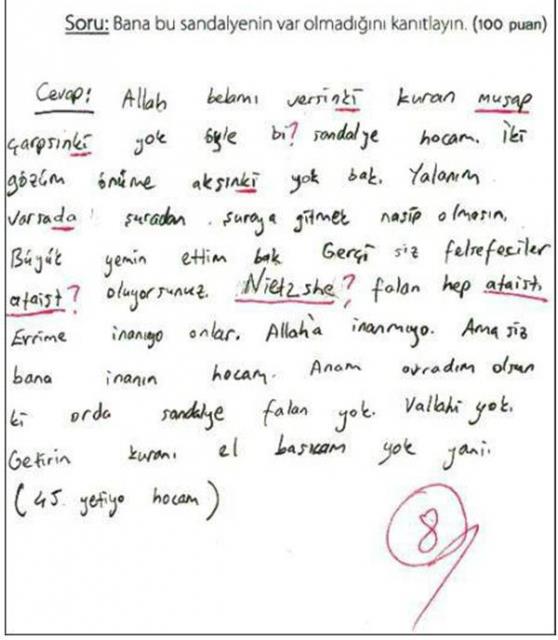 Soru: Bana bu sandalyenin var olmadığını kanıtlayın. (100 puan)
Cevap: Allah belamı versinki kuran muşap
çarpsinki yok öyle bi? sandalye hocam. İki
gözüm önüme aksınki yok bak. Yalanım
varsada şuradan şuraya gitmek nasip olmasın.
Büyük yemin ettim bak Gerçi siz felsefeciler
ataist? oluyorsunuz. Nietzshe? falan hep ataist.
Evrime inanıyo onlar. Allah'a inanmıyo. Ama siz
bana inanın hocam. Anam avradım olsun
ki orda sandalye falan yok. Vallahi yok.
Getirin kuranı el basıcam yok yani.
(45 yetiyo hocam)
8